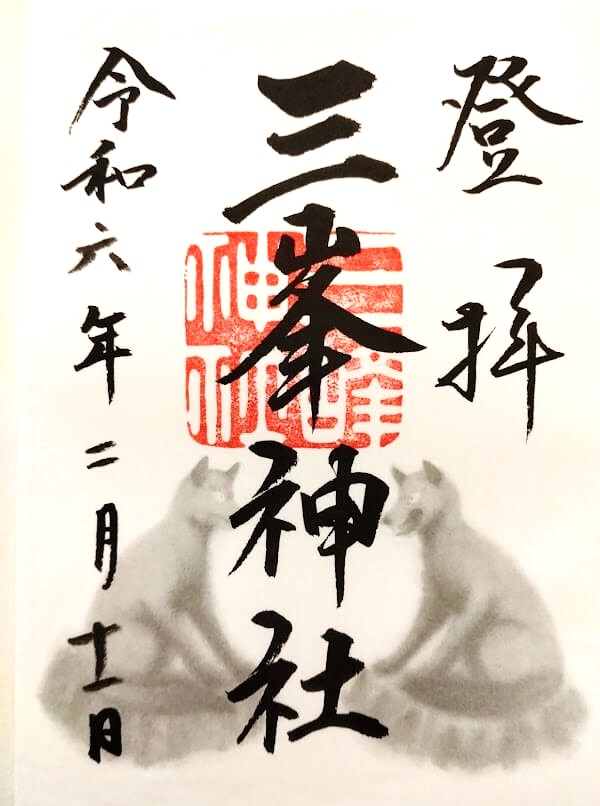 登拝
三峯神社
三峯神社
令和六年二月十一日